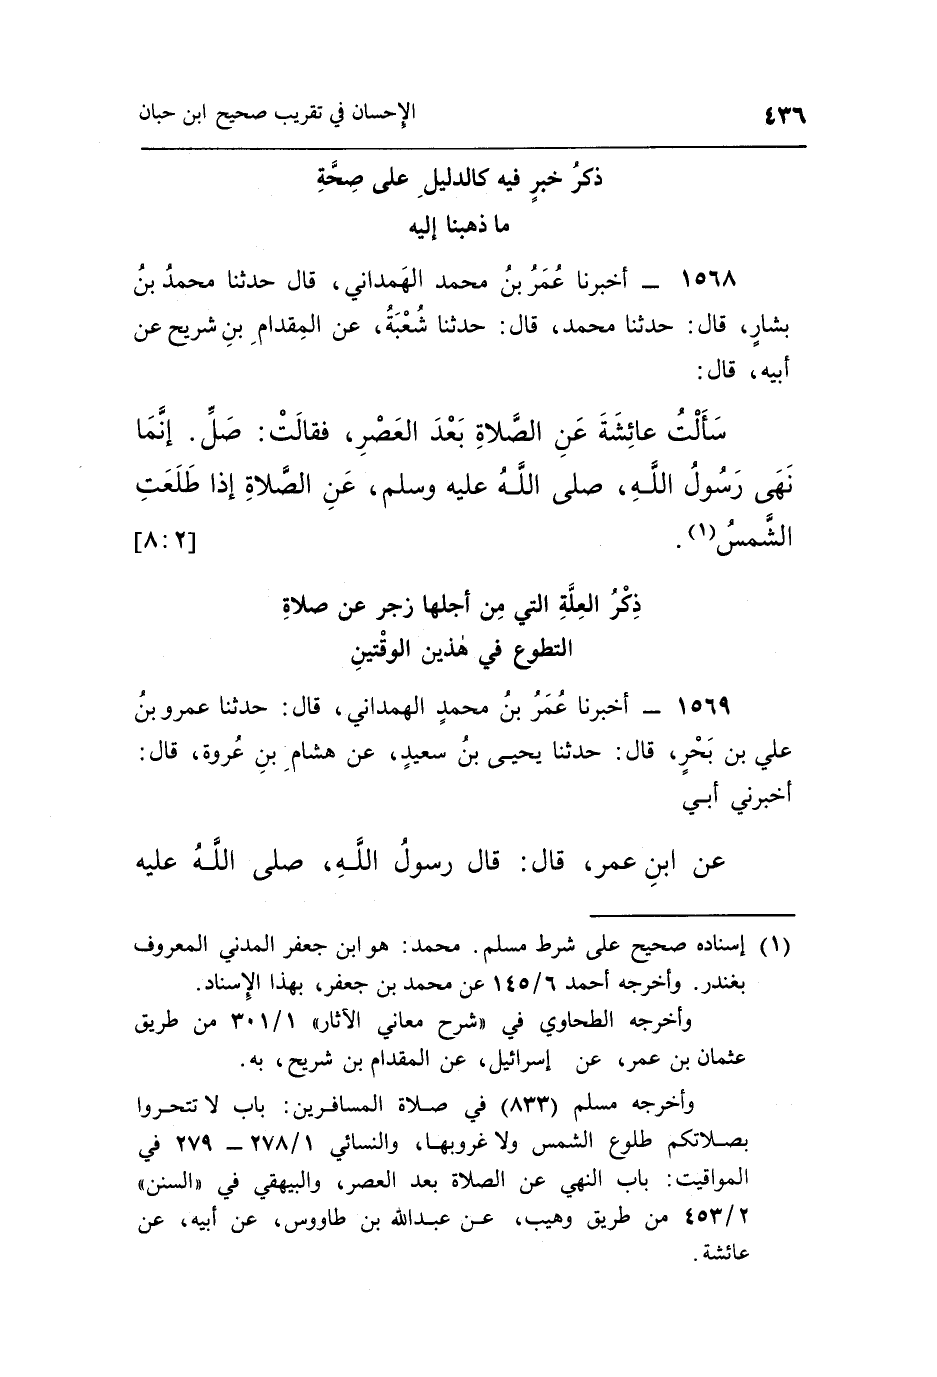 ٤٣٦ الإحسان في تقريب صحيح ابن حبان
ذكرُ خبرٍ فيه كالدليلِ على صِحَّةِ
ما ذهبنا إليه
١٥٦٨ ــ أخبرنا عُمَرُ بنُ محمد الهَمداني، قال حدثنا محمدُ بنُ
بشارٍ، قال: حدثنا محمد، قال: حدثنا شُعْبَةُ، عن المِقدامِ بنِ شريح عن
أبيه، قال:
سَأَلْتُ عائِشَةَ عَنِ الصَّلاةِ بَعْدَ العَصْرِ، فقالَتْ: صَلِّ. إنَّمَا
نَهَى رَسُولُ اللَّهِ، صلى اللَّهُ عليه وسلم، عَنِ الصَّلاةِ إذا طَلَعَتِ
الشَّمسُ(١). [٢:٨]
ذِكْرُ العِلَّةِ التي مِن أجلها زجر عن صلاةِ
التطوع في هٰذين الوقْتينِ
١٥٦٩ ــ أخبرنا عُمَرُ بنُ محمدٍ الهمداني، قال: حدثنا عمرو بنُ
علي بن بَحْرٍ، قال: حدثنا يحيى بنُ سعيدٍ، عن هشامِ بنِ عُروة، قال:
أخبرني أبي
عن ابنِ عمر، قال: قال رسولُ اللَّهِ، صلى اللَّهُ عليه
(١) إسناده صحيح على شرط مسلم. محمد: هو ابن جعفر المدني المعروف
بغندر. وأخرجه أحمد ١٤٥/٦ عن محمد بن جعفر، بهذا الإسناد.
وأخرجه الطحاوي في «شرح معاني الآثار» ٣٠١/١ من طريق
عثمان بن عمر، عن إسرائيل، عن المقدام بن شريح، به.
وأخرجه مسلم (٨٣٣) في صلاة المسافرين: باب لا تتحروا
بصلاتكم طلوع الشمس ولا غروبها، والنسائي ٢٧٨/١ ــ ٢٧٩ في
المواقيت: باب النهي عن الصلاة بعد العصر، والبيهقي في «السنن»
٤٥٣/٢ من طريق وهيب، عن عبدالله بن طاووس، عن أبيه، عن
عائشة.